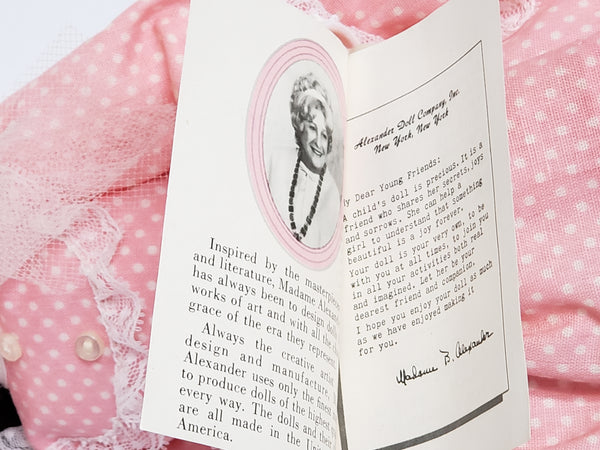 Inspired by the masterpieces
and literature, Madame Alexan
has always been to design dolls
works of art and with all the
grace of the era they represent
Always the creative artist
design and manufacture.
Alexander uses only the finest
to produce dolls of the highest
every way. The dolls and their
are all made in the Uni
America.
Alexander Doll Company, Inc.
New York, New York
My Dear Young Friends:
A child's doll is precious. It is a
friend who shares her secrets, joys
and sorrows. She can help a
girl to understand that something
beautiful is a joy forever.
Your doll is your very own, to be
with you at all times; to join you
in all your activities both real
and imagined. Let her be your
dearest friend and companion.
I hope you enjoy your doll as much
as we have enjoyed making it
for you.
Madame B. Alexander